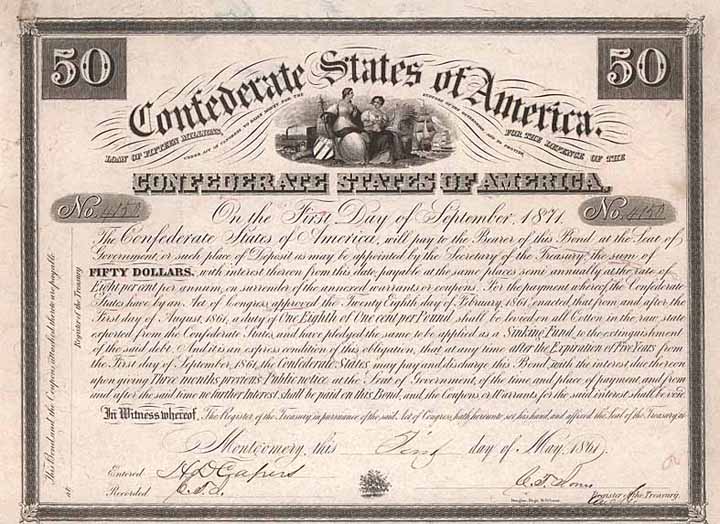 50 50
Confederate States of America.
LOAN OF FIFTEEN MILLIONS, UNDER ACT OF CONGRESS TO RAISE MONEY FOR THE SUPPORT OF THE GOVERNMENT, AND TO PROVIDE, FOR THE DEFENCE OF THE
CONFEDERATE STATES OF AMERICA.
No. 4150 No. 4150
On the First Day of September, 1871.
The Confederate States of America, will pay to the Bearer of this Bond at the Seat of
Government, or such place of Deposit as may be appointed by the Secretary of the Treasury, the sum of
FIFTY DOLLARS, with interest thereon from this date, payable at the same places semi annually at the rate of
Eight per cent per annum, on surrender of the annexed warrants or coupons. For the payment whereof, the Confederate
States have by an Act of Congress, approved the Twenty Eighth day of February, 1861, enacted, that from and after the
First day of August, 1861, a duty of One Eighth of One cent per Pound shall be levied on all Cotton in the raw state
exported from the Confederate States, and have pledged the same to be applied as a Sinking Fund, to the extinguishment
of the said debt. And it is an express condition of this obligation, that at any time after the Expiration of Five Years from
the First day of September, 1861, the Confederate States may pay and discharge this Bond, with the interest due thereon
upon giving Three months previous Public notice at the Seat of Government, of the time and place of payment, and from
and after the said time no further Interest shall be paid on this Bond, and the Coupons or Warrants for the said interest shall be void.
In Witness whereof, The Register of the Treasury, in pursuance of the said Act of Congress, hath hereunto set his hand, and affixed the Seal of the Treasury, at
Montgomery, this First day of May, 1861.
Entered H D Capers
Recorded C. T. J.
Register of the Treasury.
This Bond, and the Coupons attached thereto are payable
at
Register of the Treasury